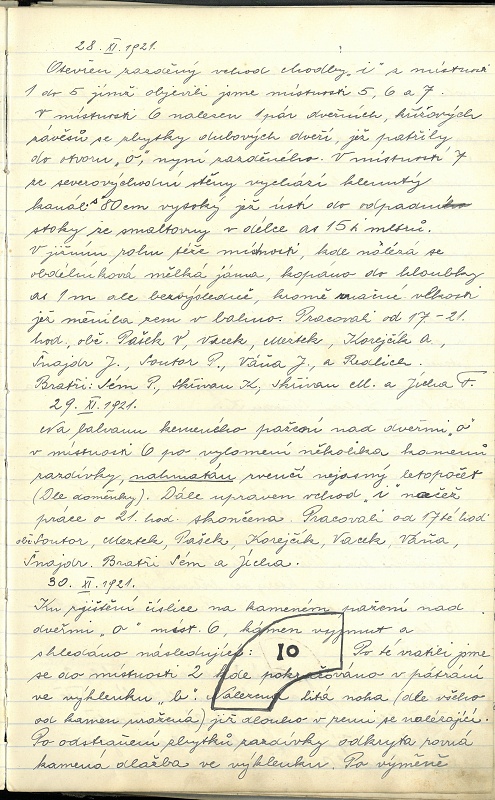 28. XI. 1921.
Otevřen zazděný vchod chodby „i" z místnosti
1 do 5 jímž objevili jsme místnosti 5, 6 a 7.
V místnosti 6 nalezen 1 pár dveřních, křížových
závěsů se zbytky dubových dveří, jež patřily
do otvoru „o", nyní zazděného. V místnosti 7
ze severovýchodní stěny vychází klenutý
kanál: 80 cm vysoký jež ústí do odpadní
stoky ze smaltovny v délce as 15ti metrů.
V jižním rohu téže místnosti, kde nalézá se
obdélníková mělká jáma, kopáno do hloubky
as 1 m ale bezvýsledně, kromě značné vlhkosti
jež měnila zem v bahno. Pracovali od 17-21.
hod. obč. Pašek V, Vacek, Mertek, Korejčík A.,
Šnajdr J., Soutor P., Váňa J., a Redlich.
Bratři: Sém P., Skřivan K, Skřivan M. a Jícha F.
29. XI. 1921.
Na balvanu kameného pažení nad dveřmi „o"
v místnosti 6 po vylomení několika kamenů
razdívky, nahmatán zvenčí nejasný letopočet
(Dle domněnky). Dále upraven vchod „i" načež
práce o 21. hod. skončena. Pracovali od 17té hod.
obč. Soutor, Mertek, Pašek, Korejčík, Vacek, Váňa,
Šnajdr. Bratři Sém a Jícha.
30. XI. 1921.
Ku zjištění číslice na kameném pažení nad
dveřmi „o" míst. 6, kámen vyjmut a
shledáno následující: 10 Po té vrátili jsme
se do místnosti 2 kde pokračováno v pátrání
ve výklenku „b". Nalezena litá noha (dle všeho
od kamen mořená) již dlouho v zemi se nalézající.
Po odstranění zbytků zazdívky odkryta rovná
kamená dlažba ve výklenku. Po výměně